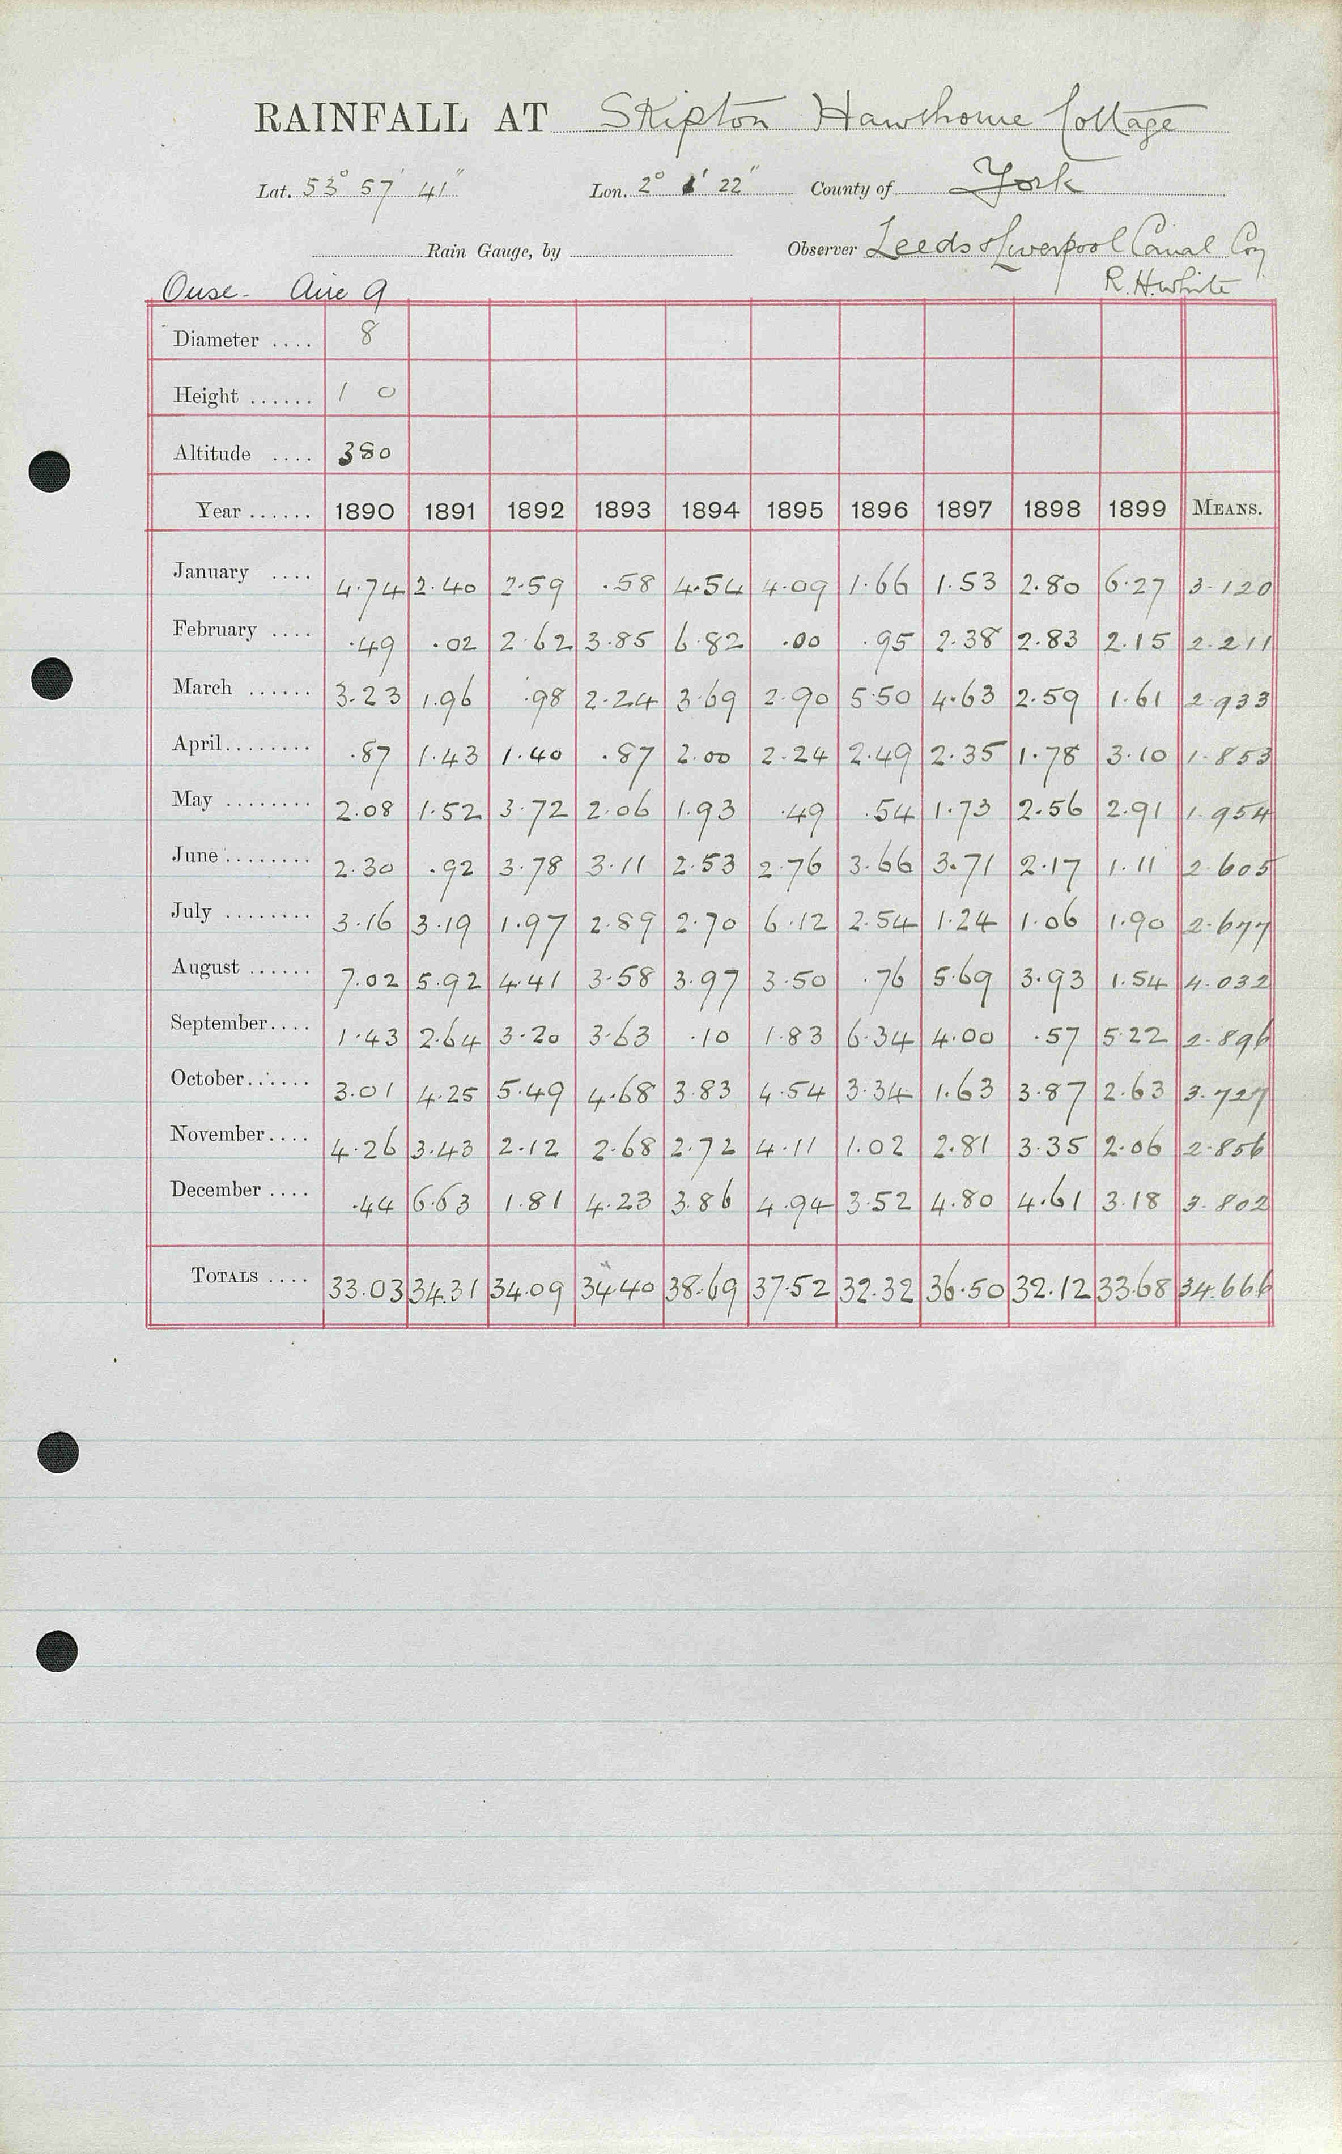 RAINFALL AT Skipton Hawthorne Cottage
Lat. 53° 57' 41" Lon. 2° 1' 22" County of York
Rain Gauge, by Observer Leeds & Liverpool Canal Coy
Ouse - Aire 9 R. H. White
Diameter .... 8
Height ...... 1 0
Altitude .... 380
Year ...... 1890 1891 1892 1893 1894 1895 1896 1897 1898 1899 MEANS.
January .... 4.74 2.40 2.59 .58 4.54 4.09 1.66 1.53 2.80 6.27 3.120
February .... .49 .02 2.62 3.85 6.82 .00 .95 2.38 2.83 2.15 2.211
March ...... 3.23 1.96 .98 2.24 3.69 2.90 5.50 4.63 2.59 1.61 2.933
April........ .87 1.43 1.40 .87 2.00 2.24 2.49 2.35 1.78 3.10 1.853
May ........ 2.08 1.52 3.72 2.06 1.93 .49 .54 1.73 2.56 2.91 1.954
June ........ 2.30 .92 3.78 3.11 2.53 2.76 3.66 3.71 2.17 1.11 2.605
July ........ 3.16 3.19 1.97 2.89 2.70 6.12 2.54 1.24 1.06 1.90 2.677
August ...... 7.02 5.92 4.41 3.58 3.97 3.50 .76 5.69 3.93 1.54 4.032
September.... 1.43 2.64 3.20 3.63 .10 1.83 6.34 4.00 .57 5.22 2.896
October...... 3.01 4.25 5.49 4.68 3.83 4.54 3.34 1.63 3.87 2.63 3.727
November.... 4.26 3.43 2.12 2.68 2.72 4.11 1.02 2.81 3.35 2.06 2.856
December .... .44 6.63 1.81 4.23 3.86 4.94 3.52 4.80 4.61 3.18 3.802
TOTALS .... 33.03 34.31 34.09 34.40 38.69 37.52 32.32 36.50 32.12 33.68 34.666